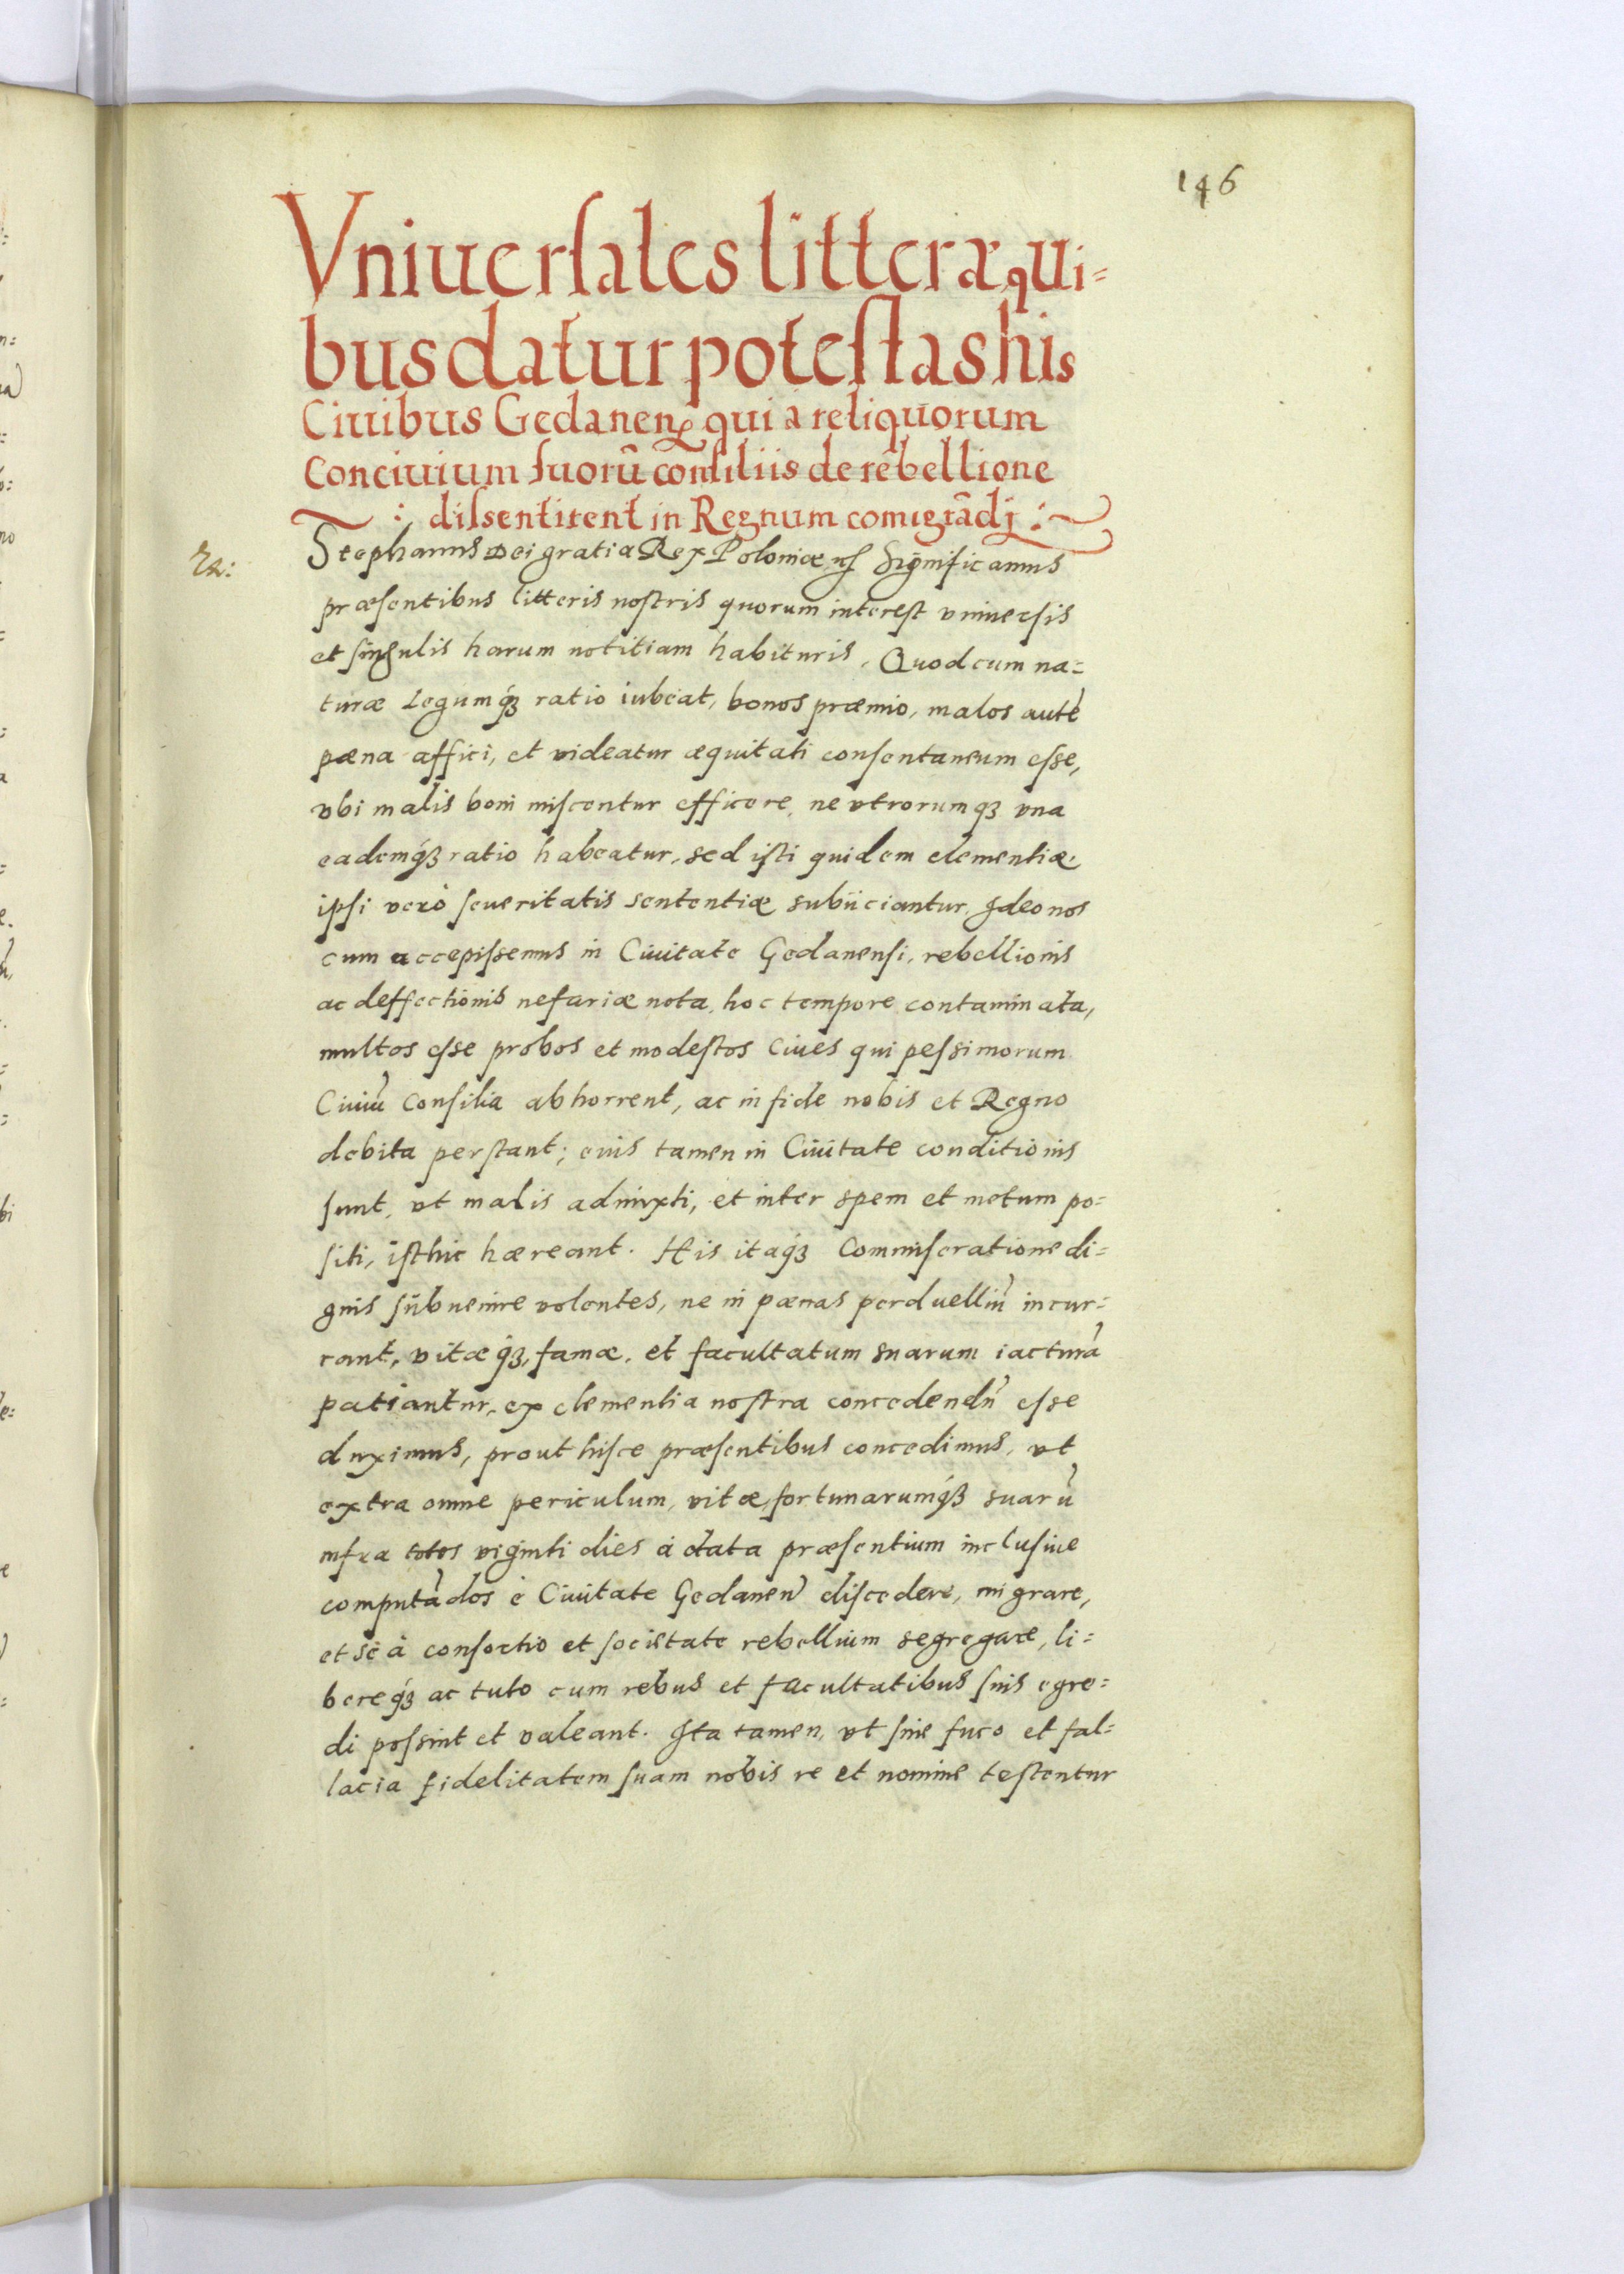 146
Vniuersales litteræ qui=
bus datur potestas his
Ciuibus Gedanen qui a reliquorum
Conciuium suorū consiliis de rebellione
: dissentirent in Regnum comigrādj :~
Stephanus Dei gratia Rex Poloniæ Significamus
præsentibus litteris nostris quorum interest vniuersis
et singulis harum notitiam habituris. Quod cum na=
turæ Legumq́ꝫ ratio iubeat, bonos præmio, malos autē
pæna affici, et videatur æquitati consentaneum esse,
vbi malis boni miscentur efficere, ne vtrorumqꝫ vna
eademq́ꝫ ratio habeatur, sed isti quidem clementiæ,
ipsi verò seueritatis sententiæ subiiciantur. Ideo nos
cum accepissemus in Ciuitate Gedanensi, rebellionis
ac deffectionis nefariæ nota, hoc tempore contaminata,
multos esse probos et modestos Ciues qui pessimorum
Ciuiū Consilia abhorrent, ac in fide nobis et Regno
debita perstant; euis tamen in Ciuitate conditionis
sunt, vt malis admixti, et inter spem et metum po=
siti, isthic hæreant. His itaq́ꝫ Commiseratione di=
gnis subuenire volentes, ne in pænas perduelliū incur=
rant, vitæq́ꝫ, famæ, et facultatum suarum iacturā
patiantur, ex clementia nostra concedendū esse
duximus, prout hisce præsentibus concedimus, vt
extra omne periculum, vitæ, fortunarumq́ꝫ suarū
infra totos viginti dies à data præsentium inclusiue
computādos è Ciuitate Gedanen̄ discedere, migrare,
et sè à consortio et societate rebellium segregare, li=
bereq́ꝫ ac tuto cum rebus et facultatibus suis egre=
di possint et valeant. Ita tamen, vt sine fuco et fal=
lacia fidelitatem suam nobis re et nomine testentur